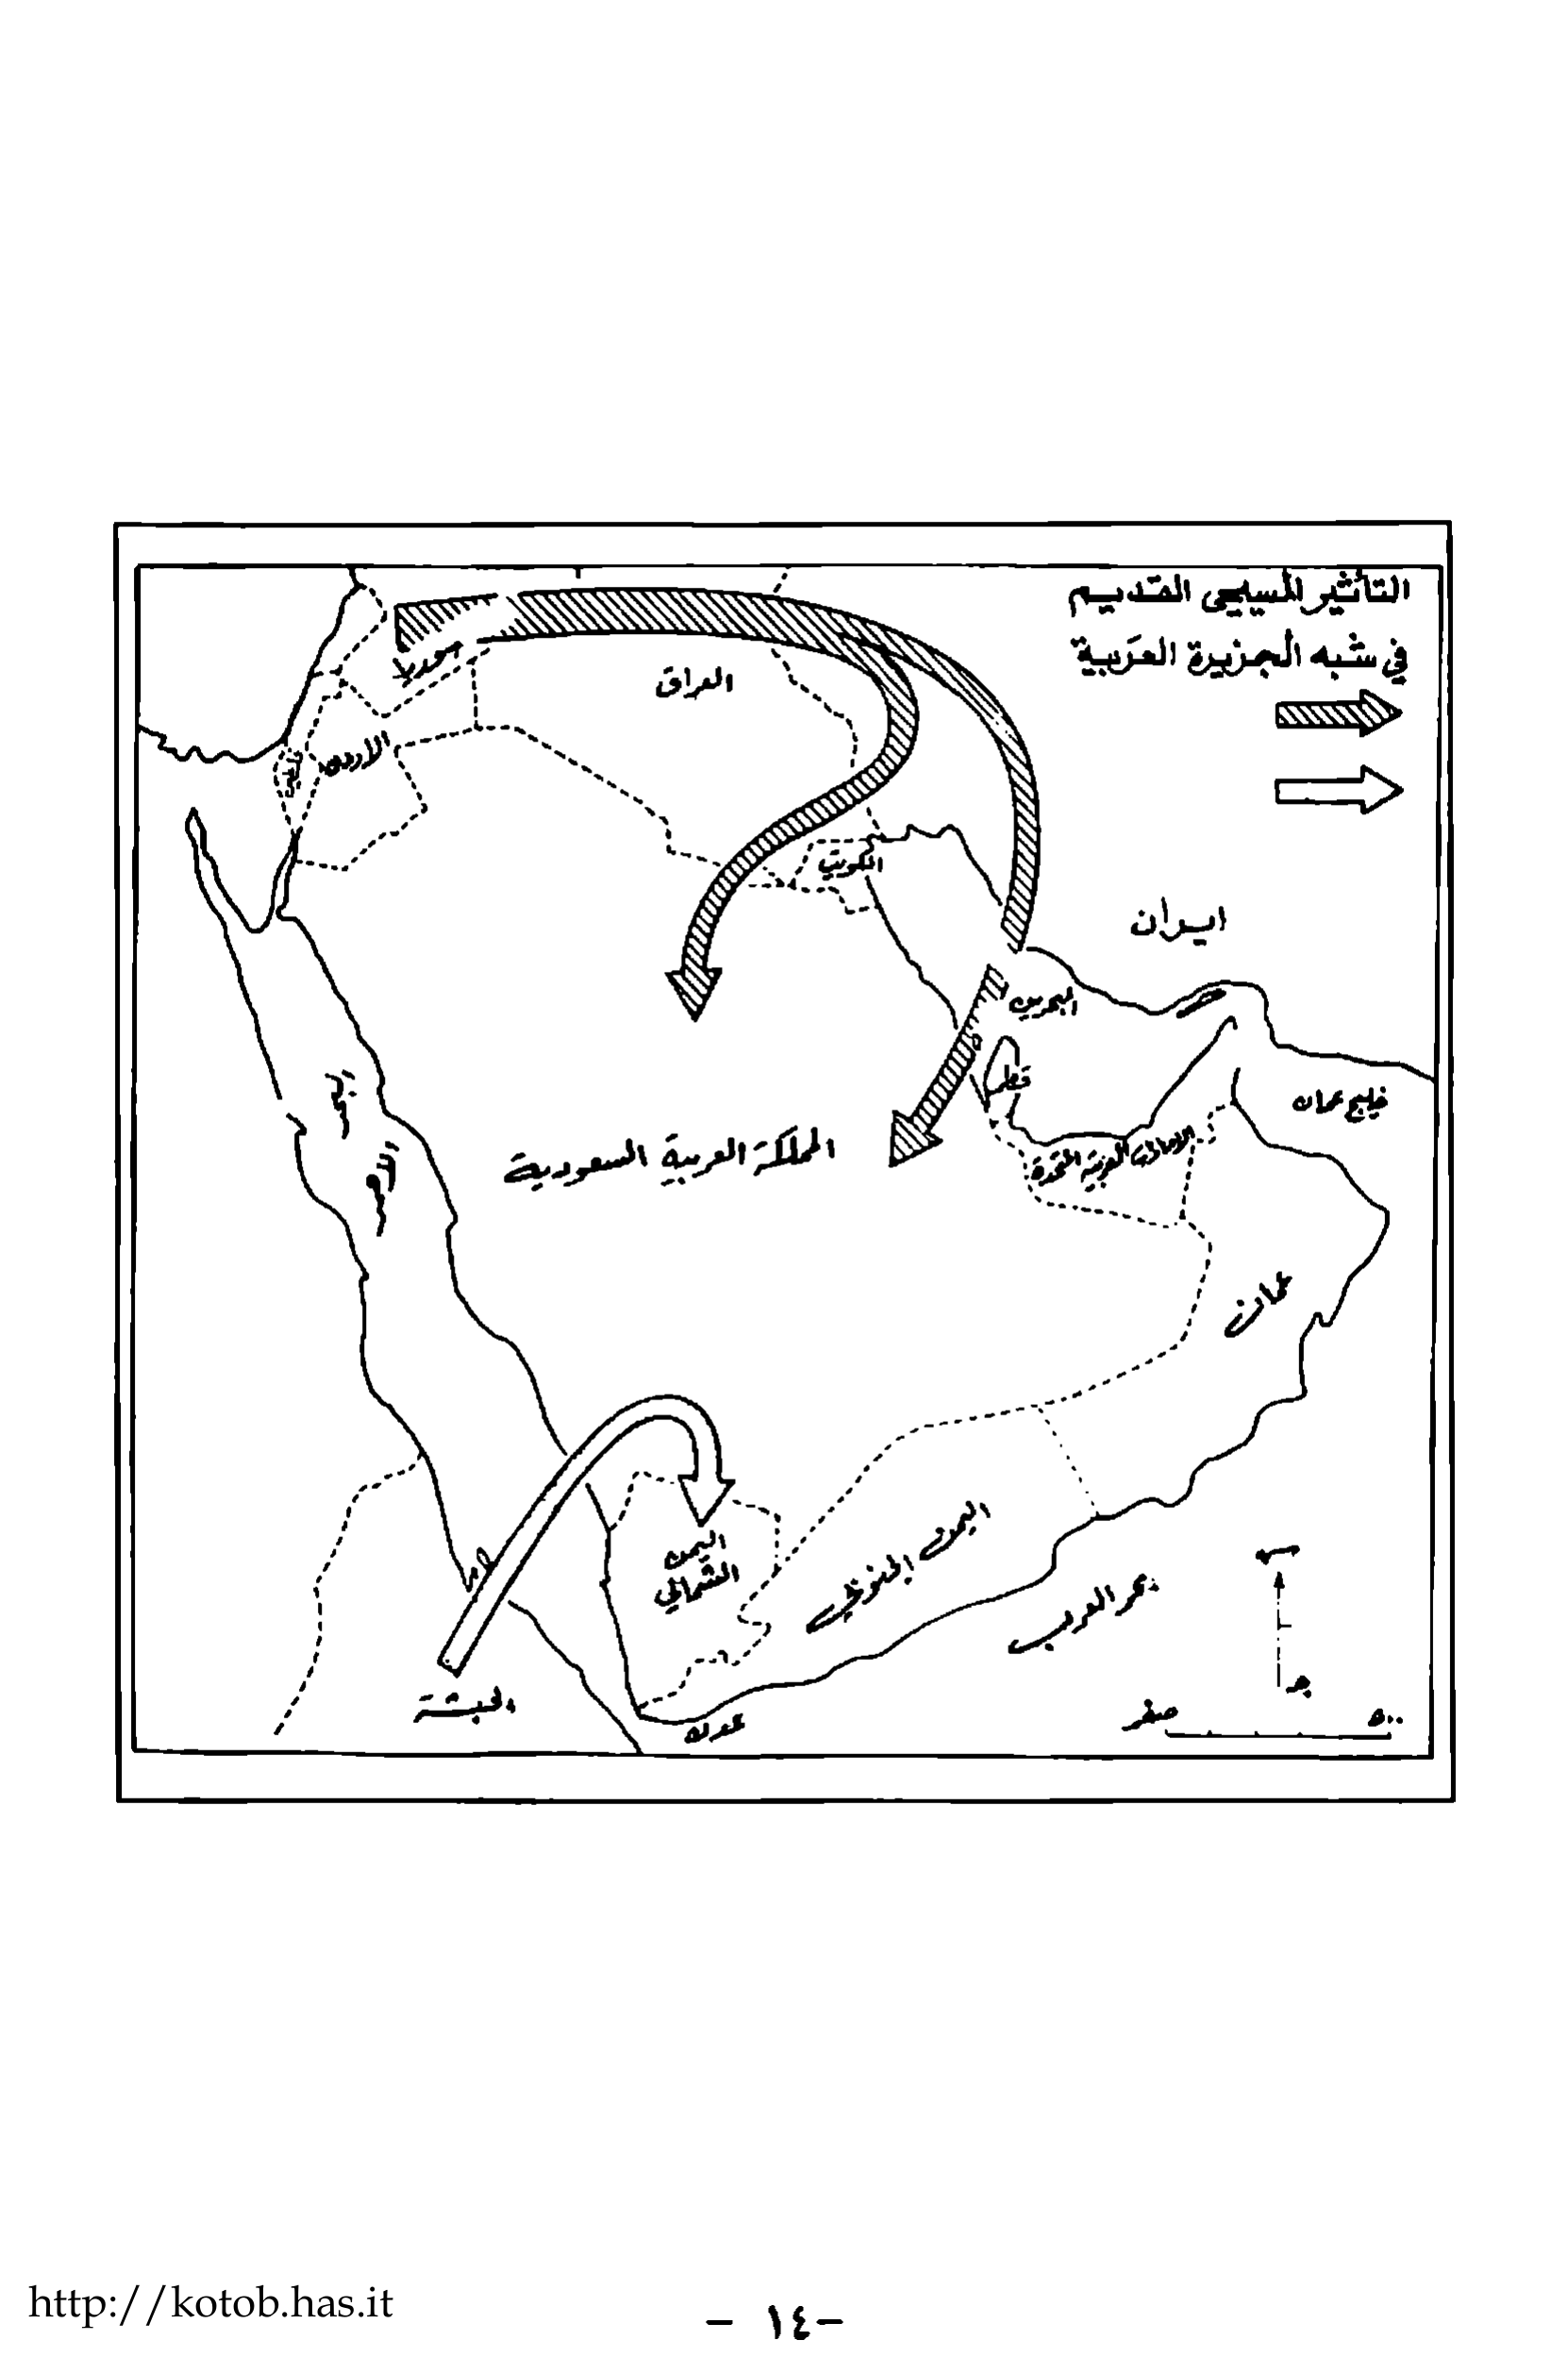 التأثير المسيحي القديم
في شبه الجزيرة العربية
سوريا
العراق
الأردن
الكويت
ايران
البحرين
قطر
خليج عمان
الامارات العربية المتحدة
المملكة العربية السعودية
البحر
الأحمر
عمان
اليمن
الشمالي
اليمن الجنوبي
بحر العرب
الحبشة
عدن
ج
صفر
٥٠٠
http://kotob.has.it
- ١٤ -